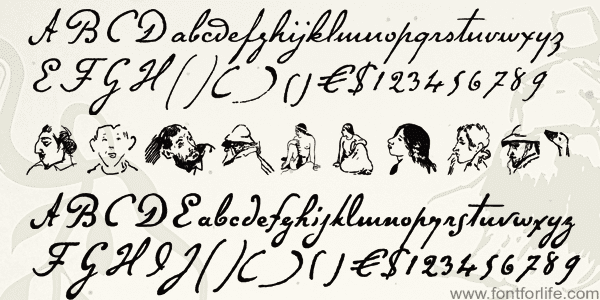 A B C D abcdefghijklmnopqrstuvwxyz
E F G H ( ) ( ) ( ) € $ 1 2 3 4 5 6 7 8 9
A B C D E abcdefghijklmnopqrstuvwxyz
F G H I J ( ) ( ) ( ) € $ 1 2 3 4 5 6 7 8 9
www.fontforlife.com